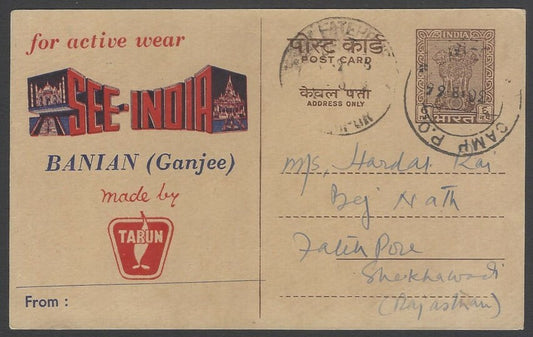 for active wear
SEE-INDIA
BANIAN (Ganjee)
made by
TARUN
From :
पोस्ट कार्ड
POST CARD
केवल पता
ADDRESS ONLY
INDIA
भारत
CAMP P.O.
M/s Hardat Rai
Bej Nath
Fateh Pore
Shekhawadi
(Rajasthan)